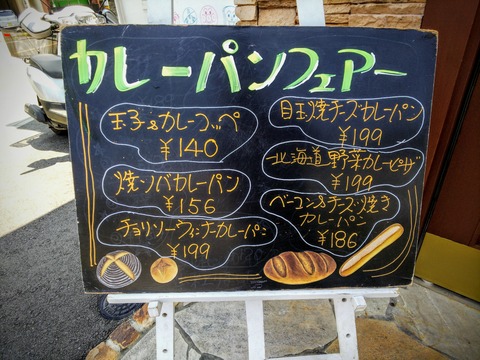 カレーパンフェアー
玉子&カレーコッペ
¥140
焼ソバカレーパン
¥156
チョリソーウィンナーカレーパン
¥199
目玉焼チーズカレーパン
¥199
北海道野菜カレーピザ
¥199
ベーコン&チーズ焼き
カレーパン
¥186